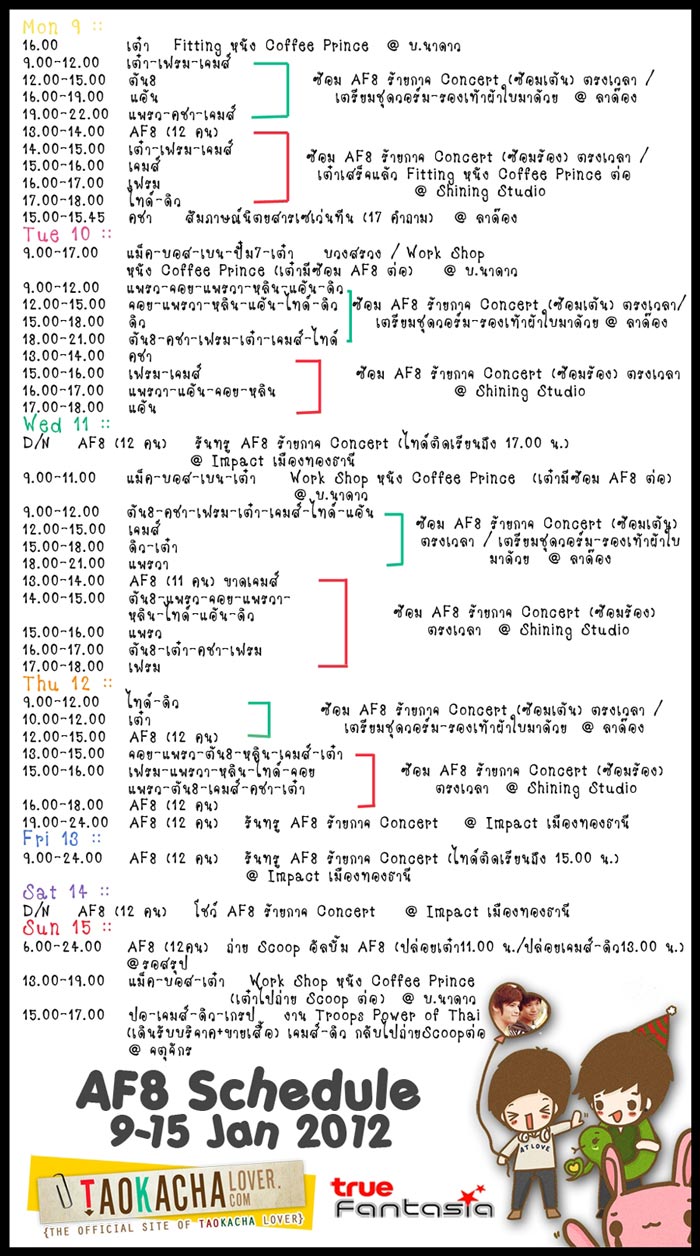 Mon 9 ::
16.00 เต๋า Fitting หนัง Coffee Prince @ บ.นาดาว
9.00-12.00 เต๋า-เฟรม-เจมส์
12.00-15.00 ตัน8
16.00-19.00 แอ้น
19.00-22.00 แพรว-คชา-เจมส์
ซ้อม AF8 ร้ายกาจ Concert (ซ้อมเต้น) ตรงเวลา /
เตรียมชุดวอร์ม-รองเท้าผ้าใบมาด้วย @ ลาด๊อง
13.00-14.00 AF8 (12 คน)
14.00-15.00 เต๋า-เฟรม-เจมส์
15.00-16.00 เจมส์
16.00-17.00 เฟรม
17.00-18.00 ไทด์-ดิว
ซ้อม AF8 ร้ายกาจ Concert (ซ้อมร้อง) ตรงเวลา /
เต๋าเสร็จแล้ว Fitting หนัง Coffee Prince ต่อ
@ Shining Studio
15.00-15.45 คชา สัมภาษณ์นิตยสารเซเว่นทีน (17 คำถาม) @ ลาด๊อง
Tue 10 ::
9.00-17.00 แม็ค-บอส-เบน-ปั๋ม7-เต๋า บวงสรวง / Work Shop
หนัง Coffee Prince (เต๋ามีซ้อม AF8 ต่อ) @ บ.นาดาว
9.00-12.00 แพรว-จอย-แพรวา-หลิน-แอ้น-ดิว
12.00-15.00 จอย-แพรวา-หลิน-แอ้น-ไทด์-ดิว
15.00-18.00 ดิว
18.00-21.00 ตัน8-คชา-เฟรม-เต๋า-เจมส์-ไทด์
ซ้อม AF8 ร้ายกาจ Concert (ซ้อมเต้น) ตรงเวลา/
เตรียมชุดวอร์ม-รองเท้าผ้าใบมาด้วย @ ลาด๊อง
13.00-14.00 คชา
15.00-16.00 เฟรม-เจมส์
16.00-17.00 แพรวา-แอ้น-จอย-หลิน
17.00-18.00 แอ้น
ซ้อม AF8 ร้ายกาจ Concert (ซ้อมร้อง) ตรงเวลา
@ Shining Studio
Wed 11 ::
D/N AF8 (12 คน) รันทรู AF8 ร้ายกาจ Concert (ไทด์ติดเรียนถึง 17.00 น.)
@ Impact เมืองทองธานี
9.00-11.00 แม็ค-บอส-เบน-เต๋า Work Shop หนัง Coffee Prince (เต๋ามีซ้อม AF8 ต่อ)
@ บ.นาดาว
9.00-12.00 ตัน8-คชา-เฟรม-เต๋า-เจมส์-ไทด์-แอ้น
12.00-15.00 เจมส์
15.00-18.00 ดิว-เต๋า
18.00-21.00 แพรวา
ซ้อม AF8 ร้ายกาจ Concert (ซ้อมเต้น)
ตรงเวลา / เตรียมชุดวอร์ม-รองเท้าผ้าใบ
มาด้วย @ ลาด๊อง
13.00-14.00 AF8 (11 คน) ขาดเจมส์
14.00-15.00 ตัน8-แพรว-จอย-แพรวา-
หลิน-ไทด์-แอ้น-ดิว
15.00-16.00 แพรว
16.00-17.00 ตัน8-เต๋า-คชา-เฟรม
17.00-18.00 เฟรม
ซ้อม AF8 ร้ายกาจ Concert (ซ้อมร้อง)
ตรงเวลา @ Shining Studio
Thu 12 ::
9.00-12.00 ไทด์-ดิว
10.00-12.00 เต๋า
12.00-15.00 AF8 (12 คน)
ซ้อม AF8 ร้ายกาจ Concert (ซ้อมเต้น) ตรงเวลา /
เตรียมชุดวอร์ม-รองเท้าผ้าใบมาด้วย @ ลาด๊อง
13.00-15.00 จอย-แพรว-ตัน8-หลิน-เจมส์-เต๋า
15.00-16.00 เฟรม-แพรวา-หลิน-ไทด์-จอย
แพรว-ตัน8-เจมส์-คชา-เต๋า
16.00-18.00 AF8 (12 คน)
ซ้อม AF8 ร้ายกาจ Concert (ซ้อมร้อง)
ตรงเวลา @ Shining Studio
19.00-24.00 AF8 (12 คน) รันทรู AF8 ร้ายกาจ Concert @ Impact เมืองทองธานี
Fri 13 ::
9.00-24.00 AF8 (12 คน) รันทรู AF8 ร้ายกาจ Concert (ไทด์ติดเรียนถึง 15.00 น.)
@ Impact เมืองทองธานี
Sat 14 ::
D/N AF8 (12 คน) โชว์ AF8 ร้ายกาจ Concert @ Impact เมืองทองธานี
Sun 15 ::
6.00-24.00 AF8 (12คน) ถ่าย Scoop อัลบั้ม AF8 (ปล่อยเต๋า11.00 น./ปล่อยเจมส์-ดิว13.00 น.)
@รอสรุป
13.00-19.00 แม็ค-บอส-เต๋า Work Shop หนัง Coffee Prince
(เต๋าไปถ่าย Scoop ต่อ) @ บ.นาดาว
15.00-17.00 ปอ-เจมส์-ดิว-เกรป งาน Troops Power of Thai
(เดินรับบริจาค+ขายเสื้อ) เจมส์-ดิว กลับไปถ่ายScoopต่อ
@ จตุจักร
AF8 Schedule
9-15 Jan 2012
TAOKACHALOVER.COM
{THE OFFICIAL SITE OF TAOKACHA LOVER}
true Fantasia
AT LOVE